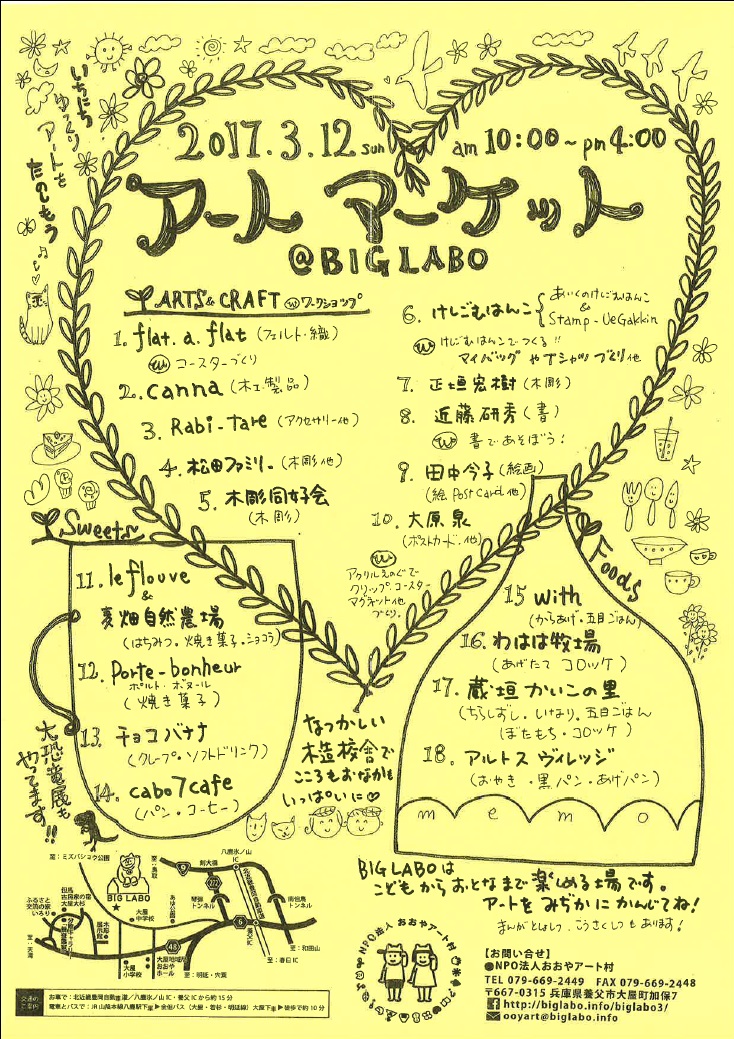 いちにち
ゆっくり
アートを
たのしもう
2017.3.12 sun am 10:00~pm 4:00
アート マーケット
@BIG LABO
ARTS & CRAFT ⓦワークショップ
1. flat. a. flat (フェルト・織)
ⓦ コースターづくり
2. canna (木工製品)
3. Rabi-tare (アクセサリー他)
4. 松田ファミリー (木彫他)
5. 木彫同好会
(木彫)
6. けしごむはんこ { あいくのけしごむはんこ
&
Stamp-UeGakkin
ⓦ けしごむはんこでつくる!!
マイバッグ やTシャツ づくり他
7. 正垣宏樹 (木彫)
8. 近藤研秀 (書)
ⓦ 書であそぼう!
9. 田中今子 (絵画)
(絵 Post Card 他)
10. 大原泉
(ポストカード.他)
ⓦ
アクリルえのぐで
クリップ.コースター
マグネット他
づくり。
Sweets
11. le flouve
&
麦畑自然農場
(はちみつ.焼き菓子.ショコラ)
12. porte-bonheur
ポルト・ボヌール
(焼き菓子)
13. チョコバナナ
(クレープ・ソフトドリンク)
14. cabo7cafe
(パン・コーヒー)
Foods
15 with
(からあげ.五目ごはん)
16. わはは牧場
(あげたて コロッケ)
17. 蔵垣かいこの里
(ちらしずし.いなり.五目ごはん
ぼたもち・コロッケ)
18. アルトス ヴィレッジ
(おやき ・黒パン・あげパン)
memo
なつかしい
木造校舎で
こころもおなかも
いっぱいに♡
大恐竜展も
やってます!!
BIG LABOは
こどもからおとなまで楽しめる場です。
アートをみぢかにかんじてね!
まんがとしょしつ、こうさくしつもあります!
至:ミズバショウ公園
至:鳥取
八鹿氷ノ山
IC
BIG LABO
但馬
古民家の宿
大屋大杉
ふるさと
交流の家
いろり
至:大海
木彫
展示館
大屋
中学校
あゆ公園
琴弾
トンネル
剣大橋
272
9
6
48
北近畿豊岡自動車道
養父IC
南但馬
トンネル
至:和田山
至:春日IC
大屋
小学校
大屋地域局
おおや
ホール
至:明延・宍粟
交通の
ご案内
お車で:北近畿豊岡自動車道/八鹿氷ノ山 IC・養父 IC から約 15 分
電車とバスで:JR 山陰本線八鹿駅下車▶全但バス(大屋・若杉・明延線)大屋下車▶徒歩で約 10 分
NPO法人 おおやアート村
【お問い合せ】
●NPO法人おおやアート村
TEL 079-669-2449 FAX 079-669-2448
〒667-0315 兵庫県養父市大屋町加保7
http://biglabo.info/biglabo3/
ooyart@biglabo.info